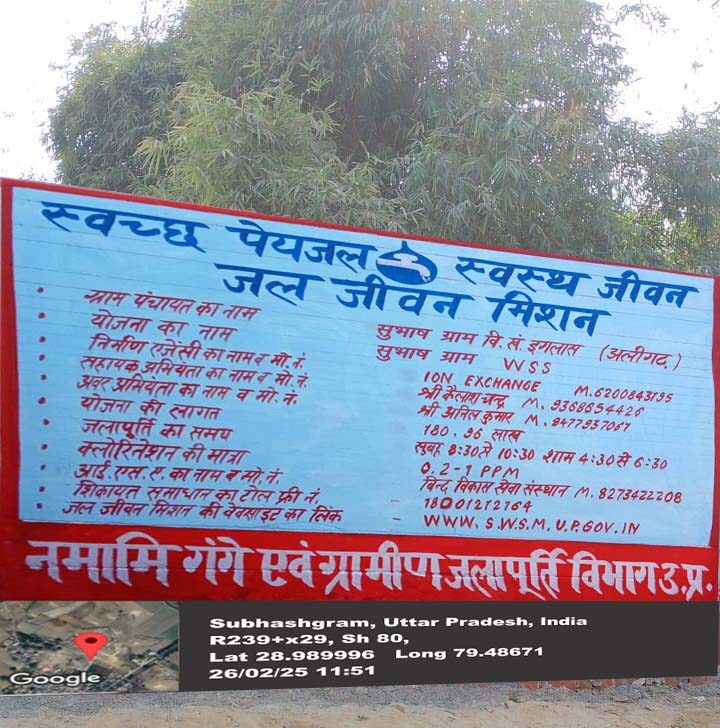 स्वच्छ पेयजल स्वस्थ जीवन
जल जीवन मिशन
• ग्राम पंचायत का नाम सुभाष ग्राम वि.खं. इगलास (अलीगढ़)
• योजना का नाम सुभाष ग्राम WSS
• निर्माण एजेंसी का नाम व मो.नं. ION EXCHANGE M.6200843195
• सहायक अभियंता का नाम व मो.नं. श्री कैलाश चन्द्र M. 9368654426
• अवर अभियंता का नाम व मो.नं. श्री अनिल कुमार M. 8477937067
• योजना की लागत 180.96 लाख
• जलापूर्ति का समय सुबह 8:30 से 10:30 शाम 4:30 से 6:30
• क्लोरिनेशन की मात्रा 0.2-1 PPM
• आई.एस.ए. का नाम व मो.नं. विन्द विकास सेवा संस्थान M. 8273422208
• शिकायत समाधान का टोल फ्री नं. - 18001212164
• जल जीवन मिशन की वेवसाइट का लिंक - WWW.S.W.S.M.U.P.GOV.IN
नमामि गंगे एवं ग्रामीण जलापूर्ति विभाग उ.प्र.
Subhashgram, Uttar Pradesh, India
R239+x29, Sh 80,
Lat 28.989996 Long 79.48671
26/02/25 11:51
Google